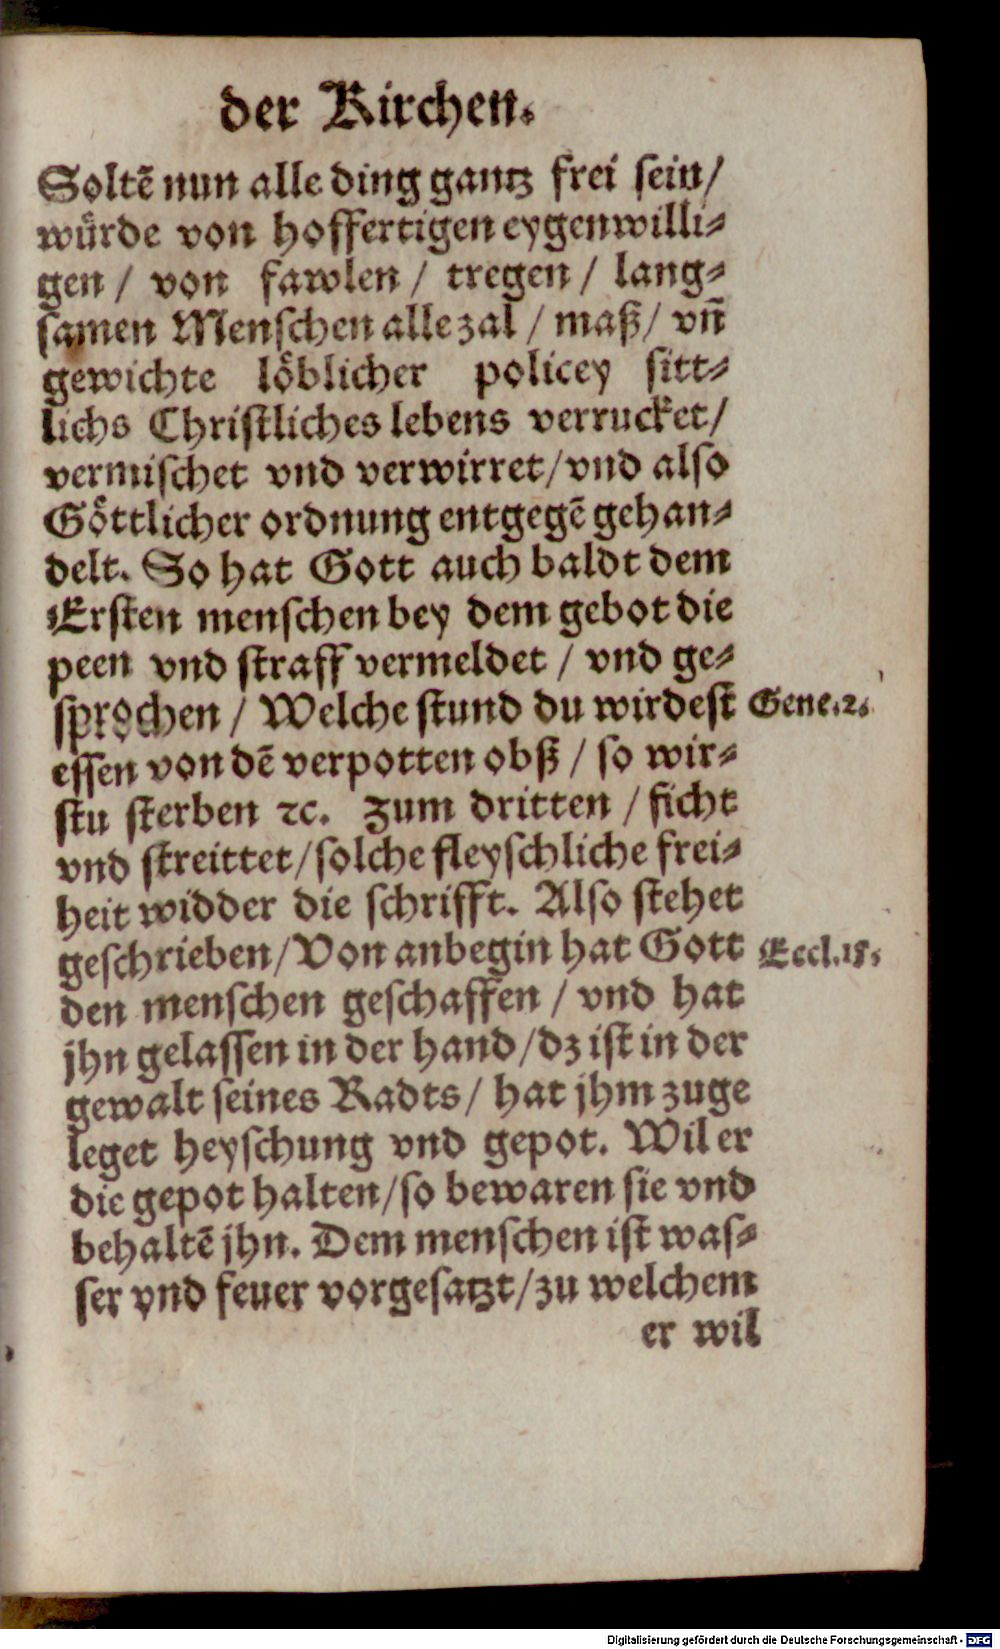 der Kirchen.
Soltẽ nun alle ding gantz frei sein/
wuͤrde von hoffertigen eygenwilli⸗
gen / von fawlen / tregen / lang⸗
samen Menschen alle zal / maß / vñ
gewichte loͤblicher policey sitt⸗
lichs Christliches lebens verrucket/
vermischet vnd verwirret/vnd also
Goͤttlicher ordnung entgegẽ gehan⸗
delt. So hat Gott auch baldt dem
Ersten menschen bey dem gebot die
peen vnd straff vermeldet / vnd ge⸗
sprochen / Welche stund du wirdest Gene.2.
essen von dẽ verpotten obß / so wir⸗
stu sterben ꝛc. Zum dritten / ficht
vnd streittet/solche fleyschliche frei⸗
heit widder die schrifft. Also stehet
geschrieben/Von anbegin hat Gott Eccl.15.
den menschen geschaffen / vnd hat
jhn gelassen in der hand/dz ist in der
gewalt seines Radts/ hat jhm zuge
leget heyschung vnd gepot. Wil er
die gepot halten/so bewaren sie vnd
behaltẽ jhn. Dem menschen ist was⸗
ser vnd feuer vorgesatzt/zu welchem
er wil
Digitalisierung gefördert durch die Deutsche Forschungsgemeinschaft - DFG